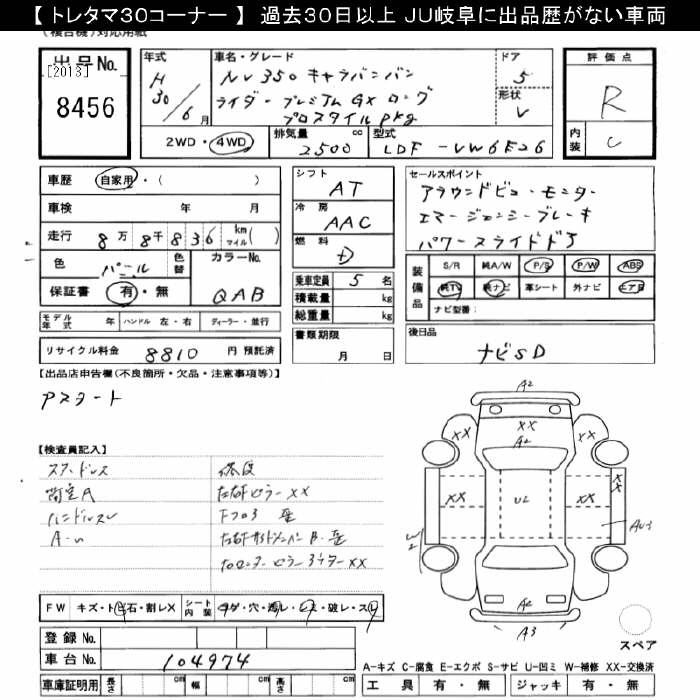 【トレタマ30コーナー】 過去30日以上 JU岐阜に出品歴がない車両
(複合機)対応用紙
出品No.
[2013]
8456
年式
H 30/6月
車名・グレード
NV350 キャラバンバン
ライダー プレミアムGX ロング
プロスタイルpkg
ドア
5
形状
V
2WD・4WD
排気量
2500 cc
型式
LDF-VW6E26
評価点
R
内装
C
車歴 自家用・( )
車検 年 月
走行 8万8千836 km マイル( )
色 パール 色替 カラーNo.
保証書 有・無 QAB
モデル年式 年 ハンドル 左・右 ディーラー・並行
リサイクル料金 8810 円 預託済
シフト
AT
冷房
AAC
燃料
D
乗車定員 5 名
積載量 kg
総重量 kg
書類期限
月 日
セールスポイント
アラウンドビューモニター
エマージェンシーブレーキ
パワースライドドア
装備品 S/R 純A/W P/S P/W ABS
純TV 純ナビ 革シート 外ナビ エアB
ナビ型番:
後日品
ナビSD
【出品店申告欄(不良箇所・欠品・注意事項等)】
Pスタート
【検査員記入】
修復
左右ピラーXX
ハンドルスレ
FW キズ・ト石・割レX シート内装 コゲ・穴・汚レ・ヒズ・破レ・スレ
登録No.
車台No. 104974
車庫証明用 長さ cm 幅 cm 高さ cm
A2
XX
XX
XX
A2
XX
UL
XX
XX
W2
AU3
A2
A3
スペア
A-キズ C-腐食 E-エクボ S-サビ U-凹ミ W-補修 XX-交換済
工具 有・無 ジャッキ 有・無